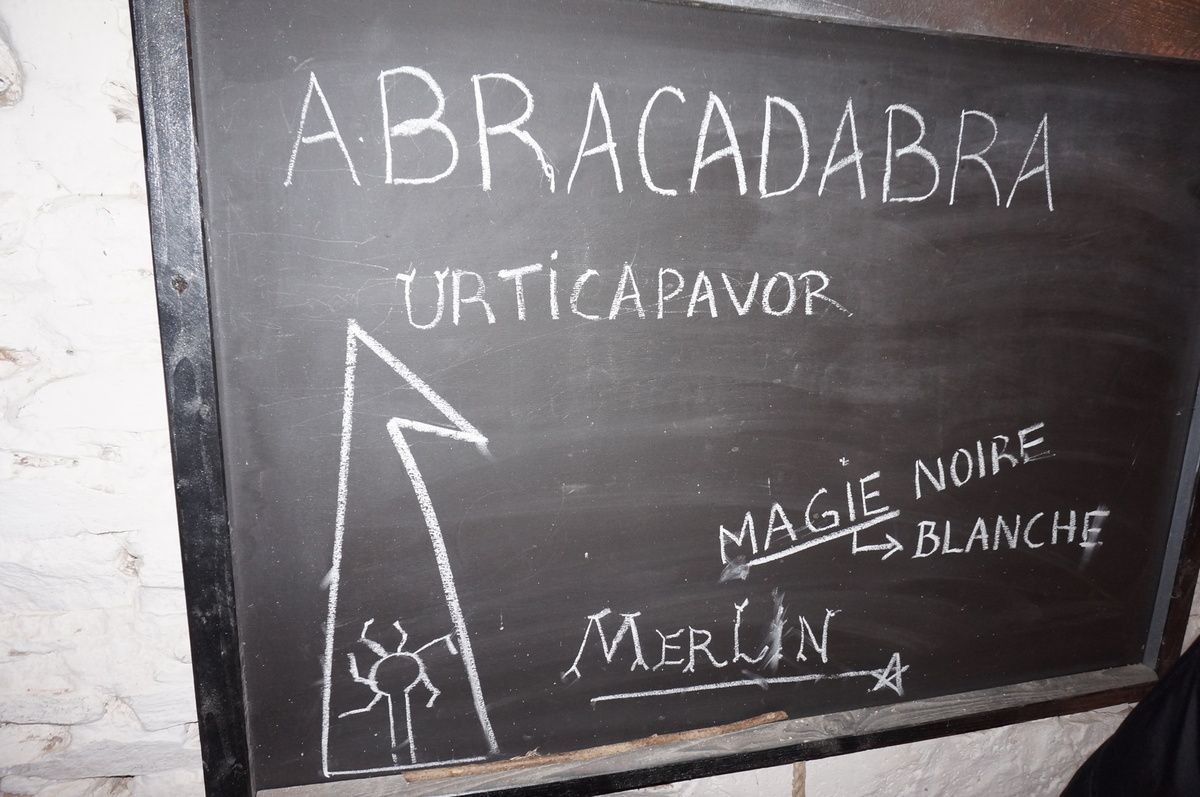 ABRACADABRA
URTICAPAVOR
MAGIE NOIRE
BLANCHE
MERLIN